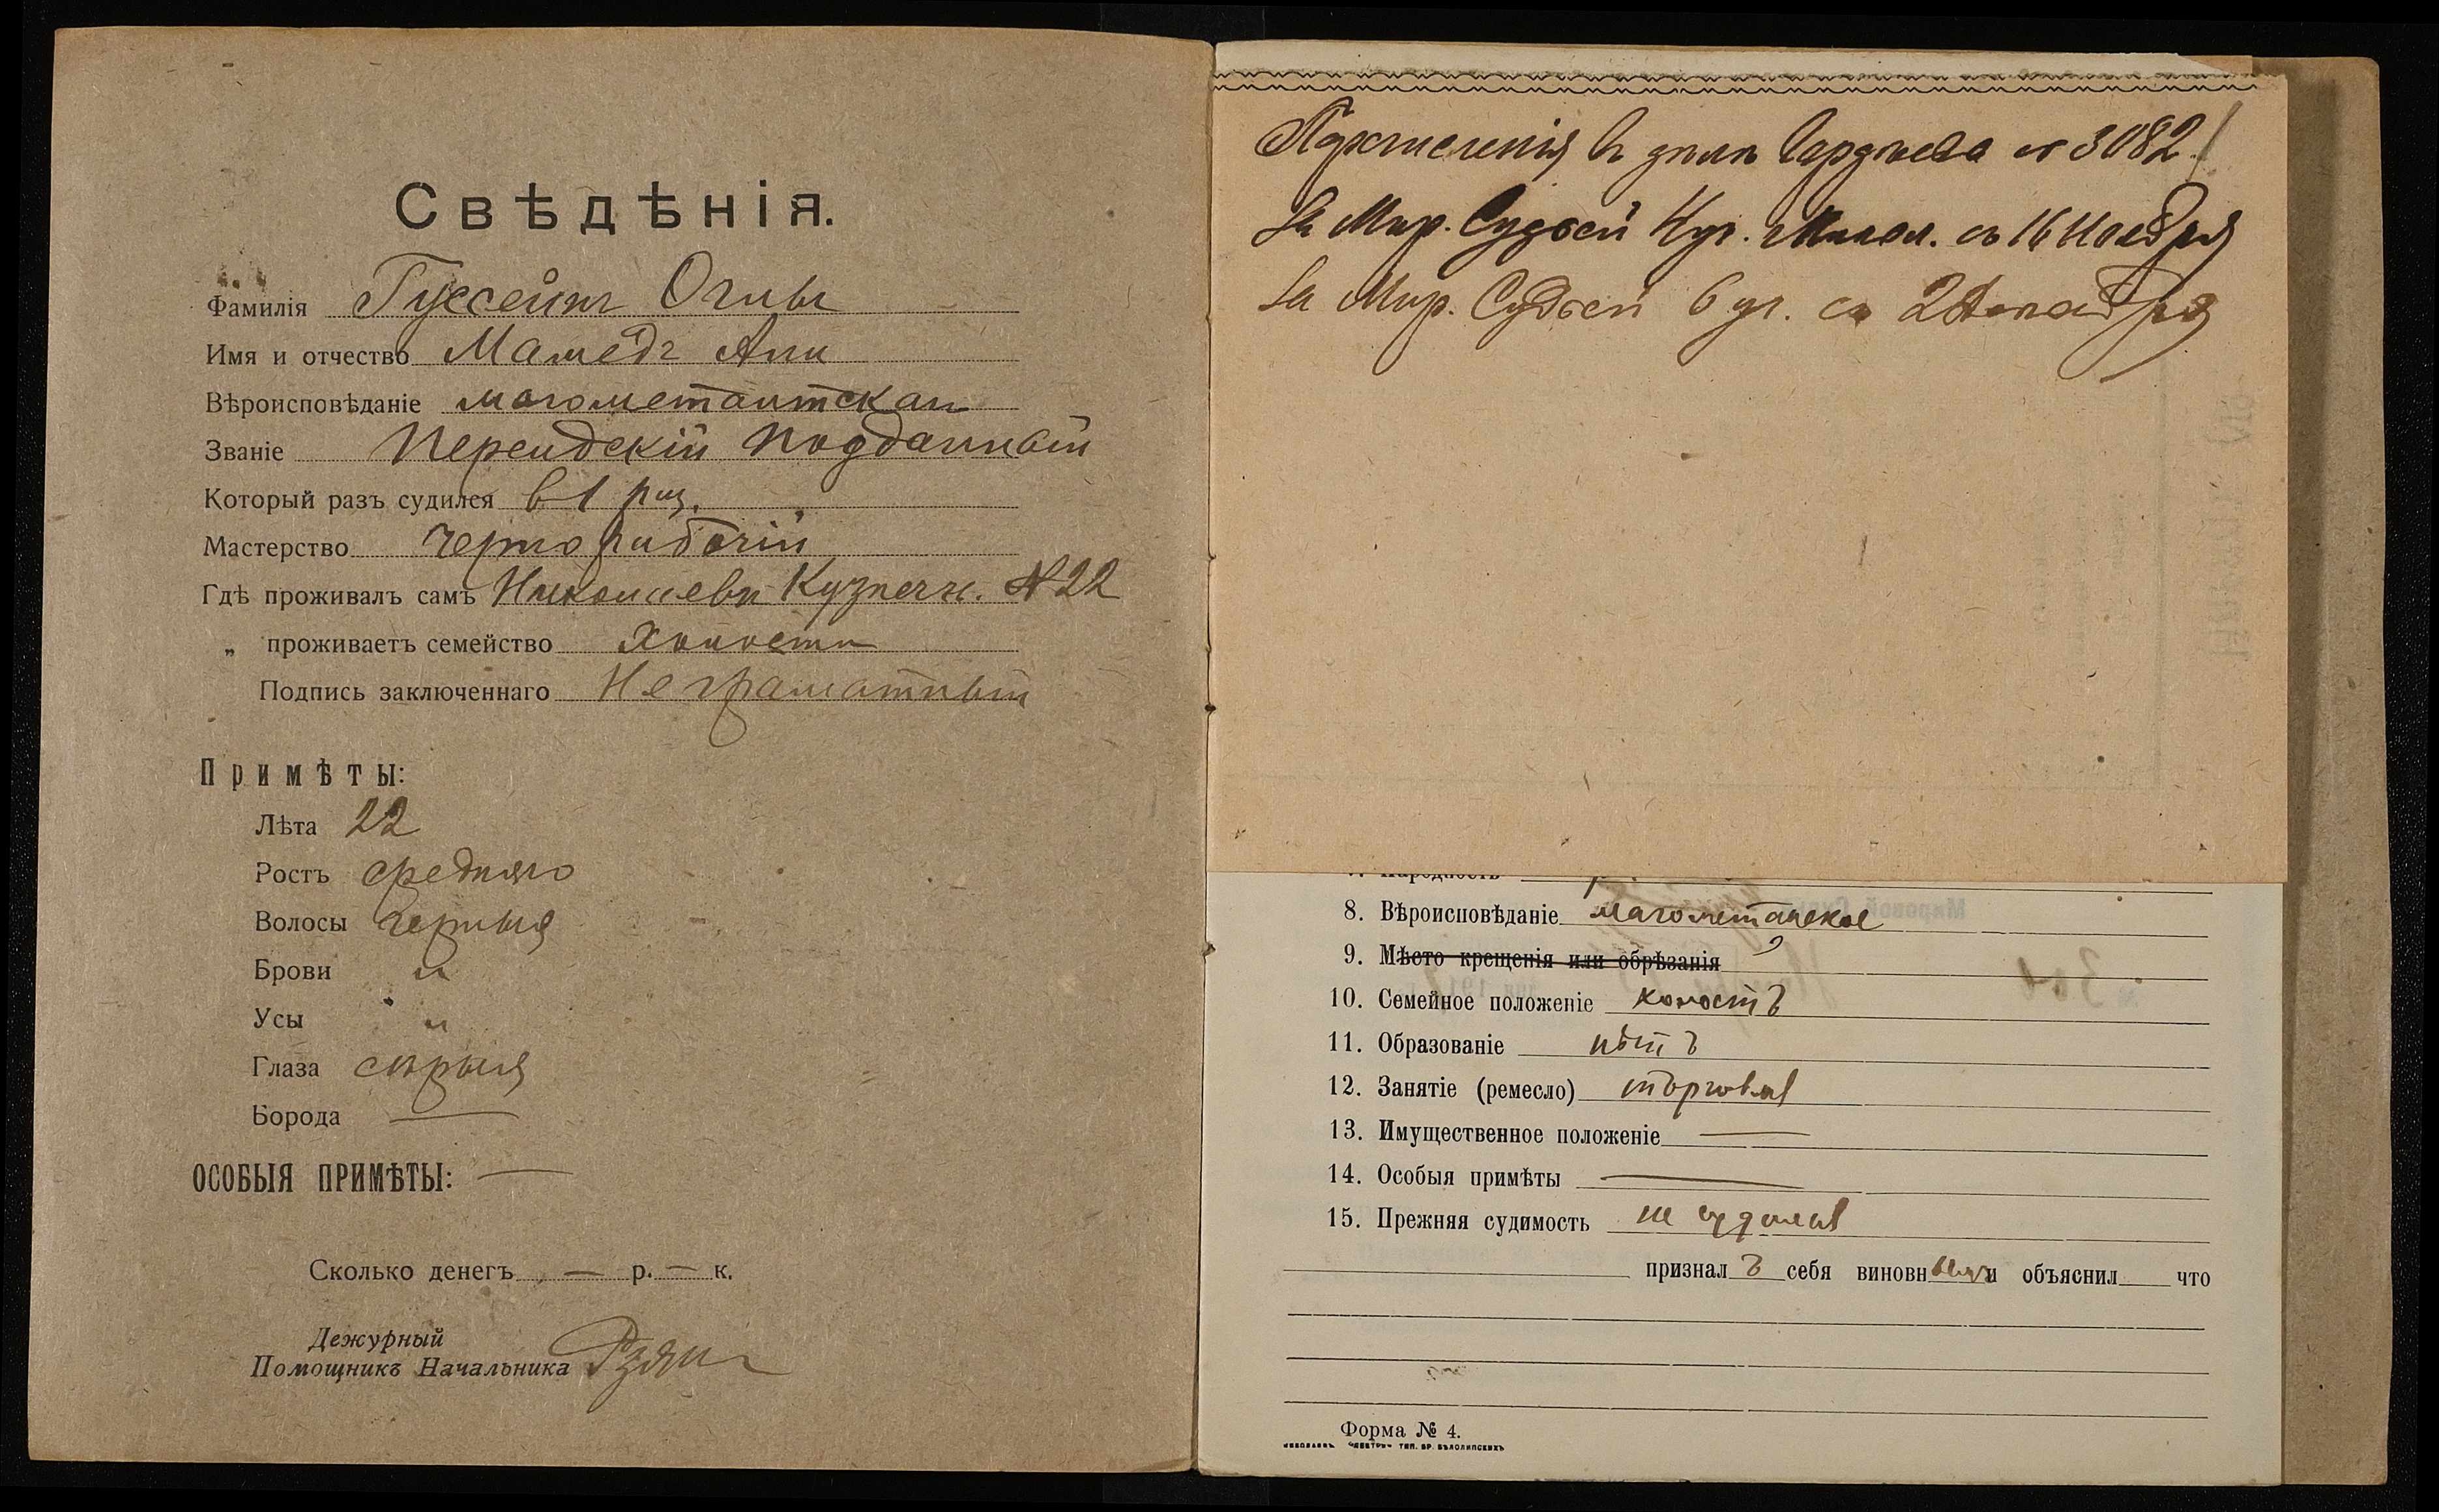 Свѣдѣнія.
Фамилія Гуссейнъ Оглы
Имя и отчество Мамедъ Али
Вѣроисповѣданіе магометантскаго
Званіе Персидскій подданный
Который разъ судился в 1 раз.
Мастерство чернорабочій
Гдѣ проживалъ самъ Николаевъ Кузнечн. № 22
„ проживаетъ семейство Холостъ
Подпись заключеннаго Неграматный
Примѣты:
Лѣта 22
Ростъ средняго
Волосы черныя
Брови „
Усы „
Глаза сѣрыя
Борода —
ОСОБЫЯ ПРИМѢТЫ: —
Сколько денегъ — р. — к.
Дежурный
Помощникъ Начальника
въ дѣлѣ № 3082
За Мир. Судьей Никол. съ 16 Ноября
За Мир. Судьей 6 уч. съ 2 Декабря
8. Вѣроисповѣданіе магометанское
9. Мѣсто крещенія или обрѣзанія
10. Семейное положеніе холостъ
11. Образованіе нѣтъ
12. Занятіе (ремесло) торговля
13. Имущественное положеніе —
14. Особыя примѣты —
15. Прежняя судимость не судился
призналъ себя виновнымъ и объяснил что
Форма № 4.